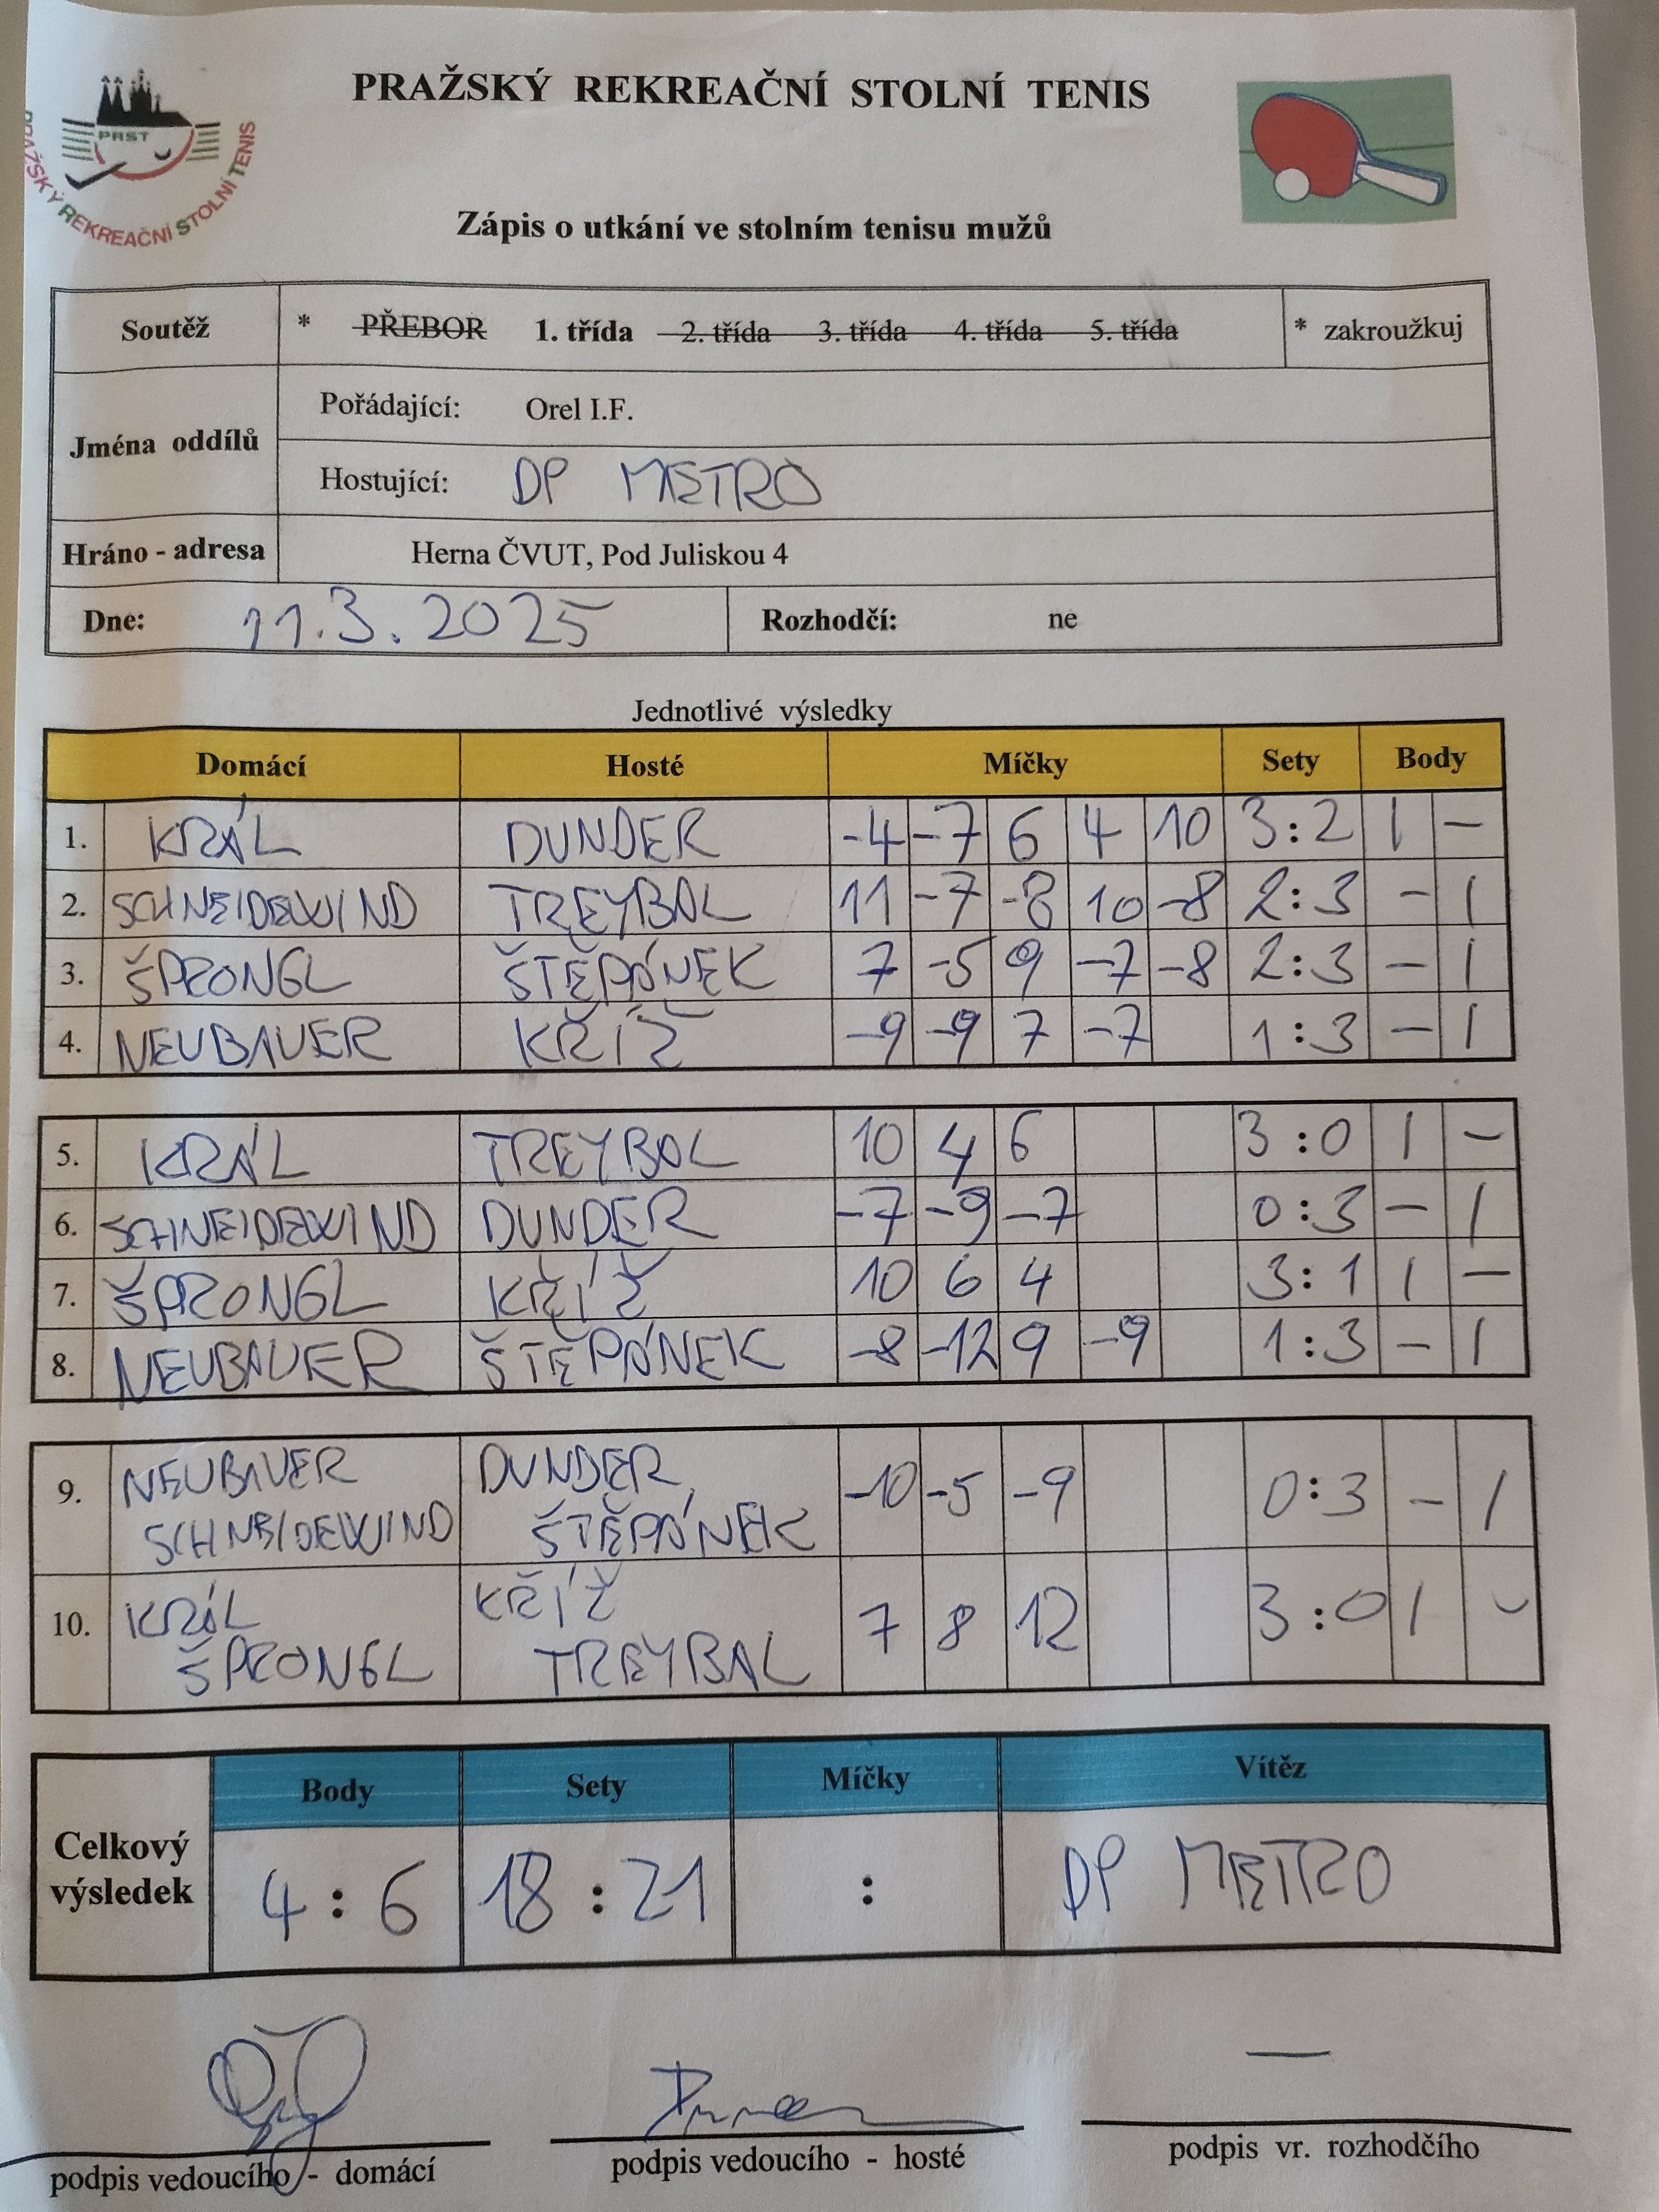 PRAŽSKÝ REKREAČNÍ STOLNÍ TENIS
PRST
PRAŽSKÝ REKREAČNÍ STOLNÍ TENIS
Zápis o utkání ve stolním tenisu mužů
Soutěž * PŘEBOR 1. třída 2. třída 3. třída 4. třída 5. třída * zakroužkuj
Jména oddílů
Pořádající: Orel I.F.
Hostující: DP METRO
Hráno - adresa Herna ČVUT, Pod Juliskou 4
Dne: 11.3.2025 Rozhodčí: ne
Jednotlivé výsledky
Domácí Hosté Míčky Sety Body
1. KRÁL DUNDER -4 -7 6 4 10 3:2 1 -
2. SCHNEIDEWIND TREYBAL 11 -7 -8 10 -8 2:3 - 1
3. ŠPRONGL ŠTĚPÁNEK 7 -5 9 -7 -8 2:3 - 1
4. NEUBAUER KŘÍŽ -9 -9 7 -7 1:3 - 1
5. KRÁL TREYBAL 10 4 6 3:0 1 -
6. SCHNEIDEWIND DUNDER -7 -9 -7 0:3 - 1
7. ŠPRONGL KŘÍŽ 10 6 4 3:1 1 -
8. NEUBAUER ŠTĚPÁNEK -8 -12 9 -9 1:3 - 1
9. NEUBAUER DUNDER -10 -5 -9 0:3 - 1
SCHNEIDEWIND ŠTĚPÁNEK
10. KRÁL KŘÍŽ 7 8 12 3:0 1 -
ŠPRONGL TREYBAL
Body Sety Míčky Vítěz
Celkový výsledek 4:6 18:21 : DP METRO
podpis vedoucího - domácí podpis vedoucího - hosté podpis vr. rozhodčího